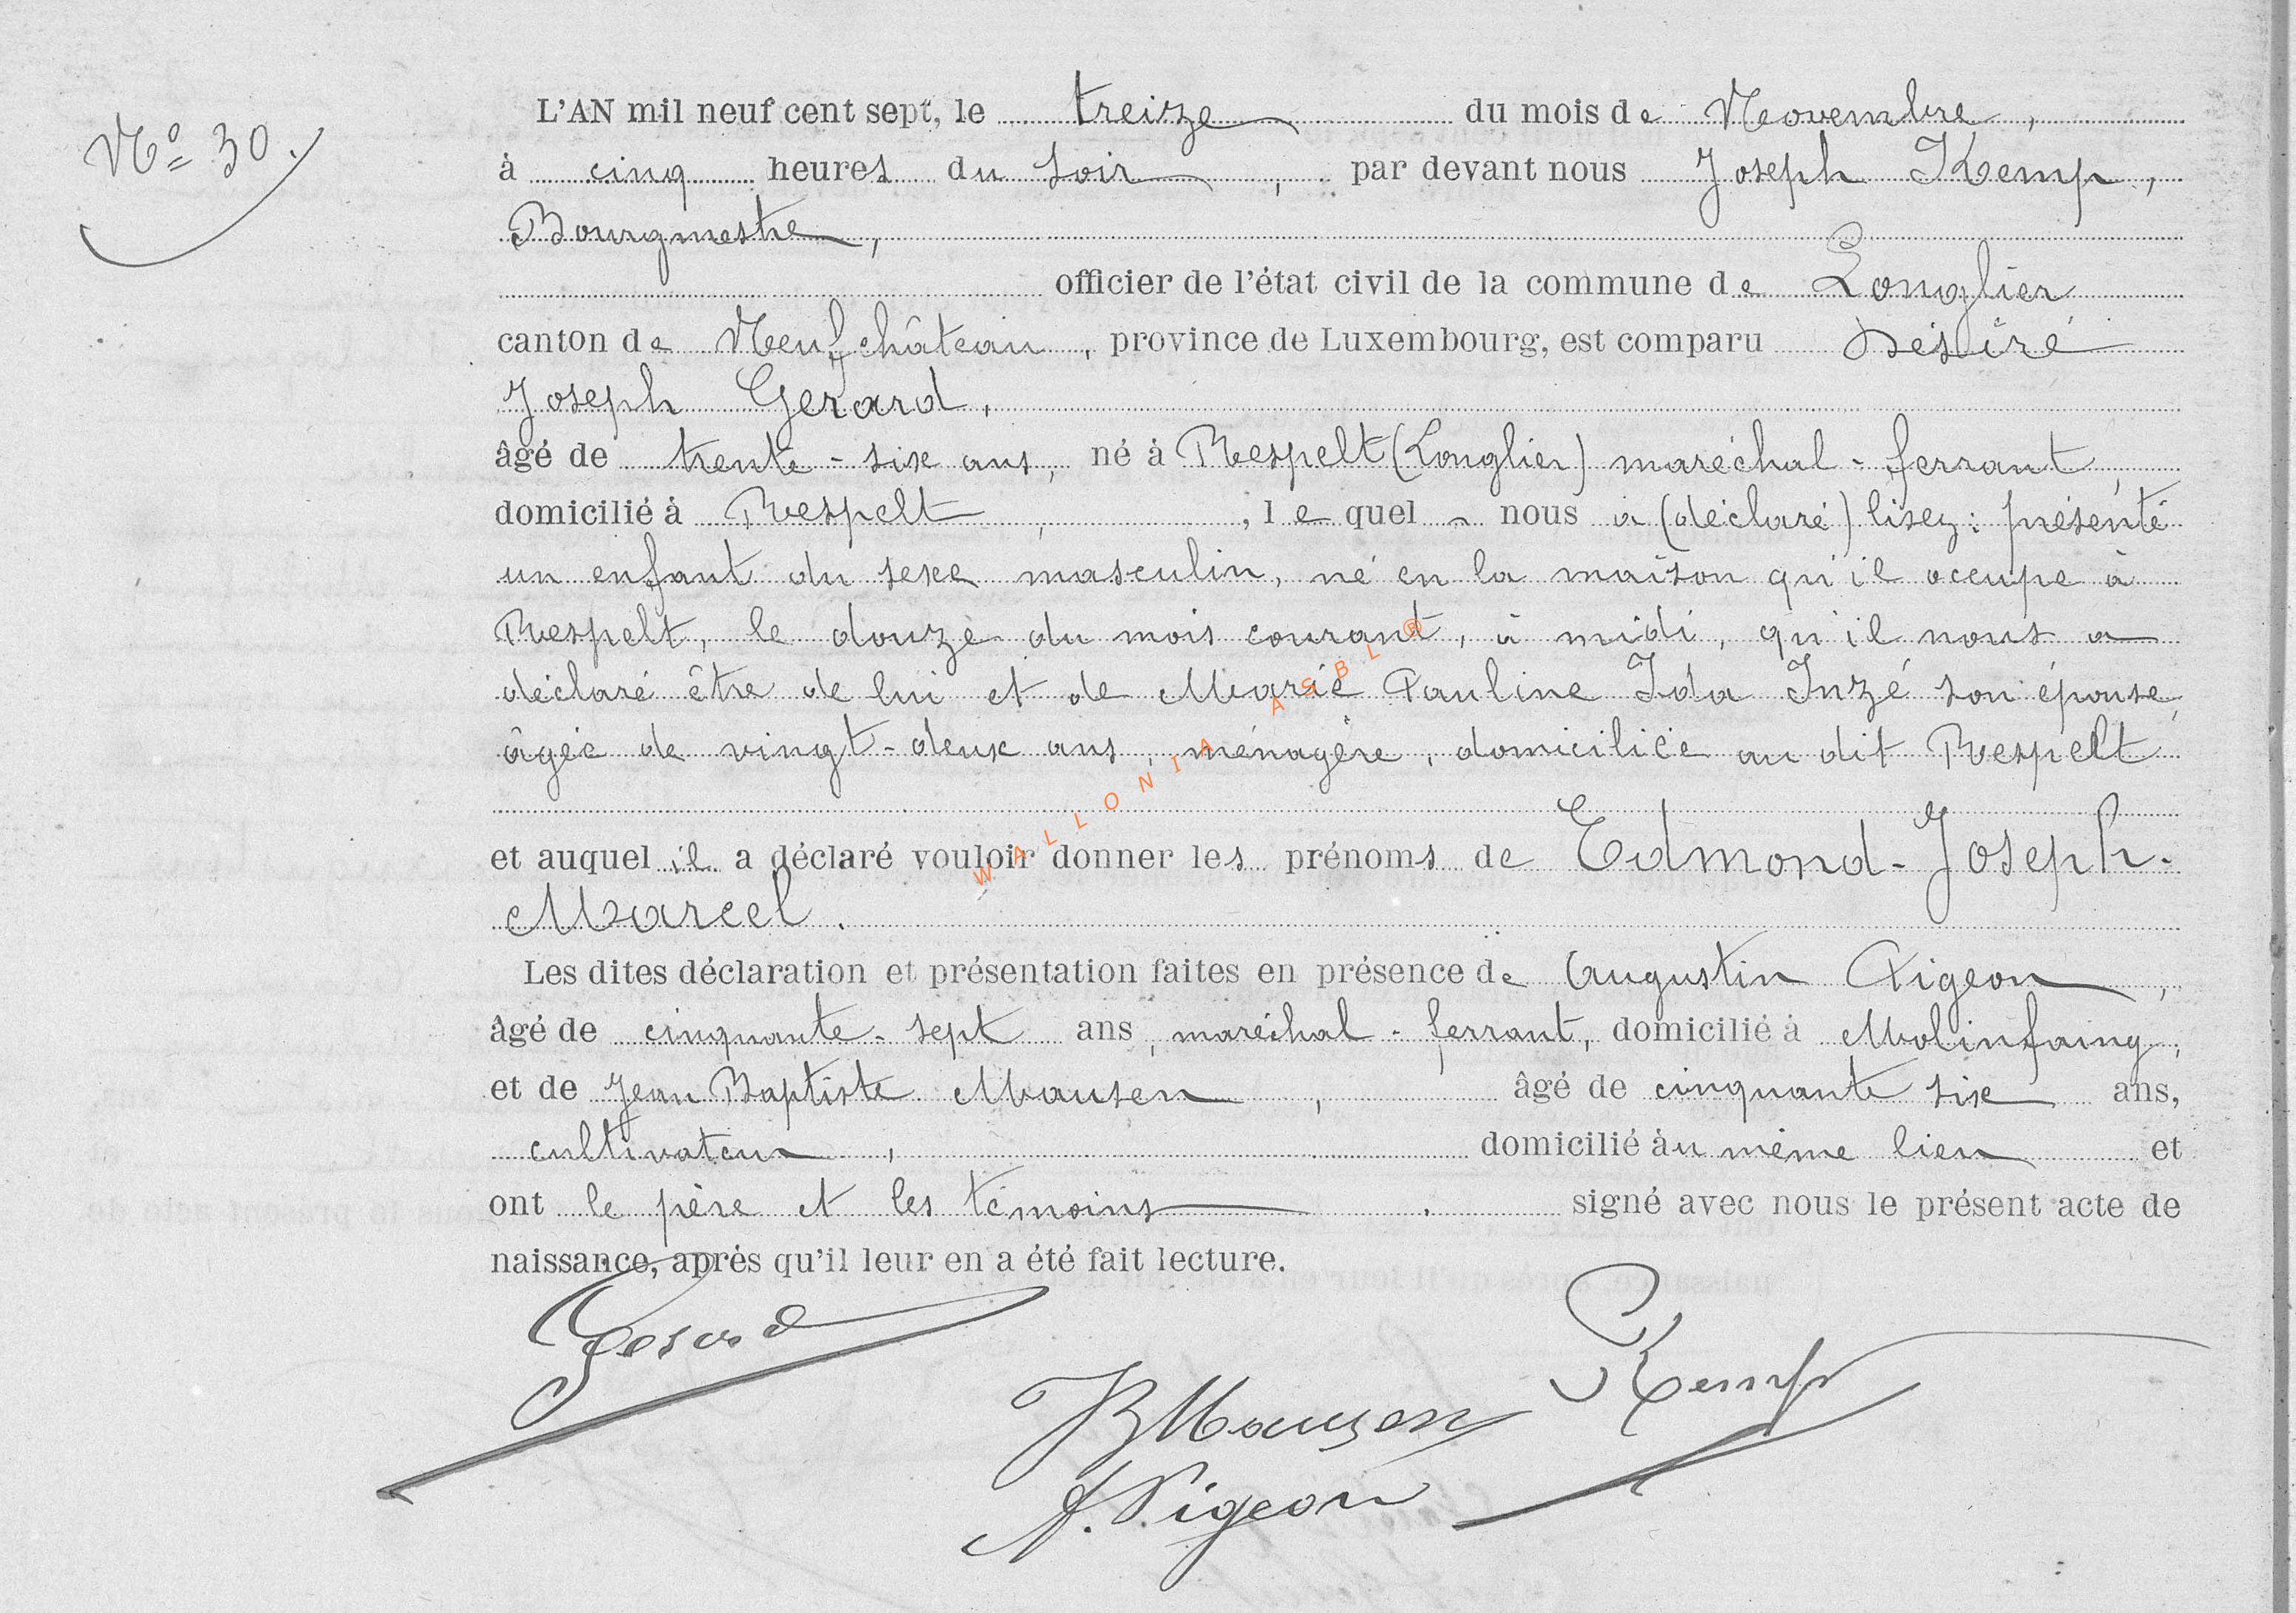 Nº 30.
L'AN mil neuf cent sept, le treize du mois de Novembre,
à cinq heures du soir, par devant nous Joseph Kemp,
Bourgmestre,
officier de l'état civil de la commune de Longlier
canton de Neufchâteau, province de Luxembourg, est comparu Désiré
Joseph Gerard,
âgé de trente-six ans, né à Respelt (Longlier) maréchal-ferrant,
domicilié à Respelt, lequel nous a (déclaré) lisez: présenté
un enfant du sexe masculin, né en la maison qu'il occupe à
Respelt, le douze du mois courant, à midi, qu'il nous a
déclaré être de lui et de Marie Pauline Ida Inzé son épouse,
âgée de vingt-deux ans, ménagère, domiciliée au dit Respelt
et auquel il a déclaré vouloir donner les prénoms de Edmond-Joseph-
Marcel.
Les dites déclaration et présentation faites en présence de Augustin Pigeon,
âgé de cinquante-sept ans, maréchal-ferrant, domicilié à Molinfaing,
et de Jean Baptiste Mausen, âgé de cinquante six ans,
cultivateur, domicilié àu même lieu et
ont le père et les témoins. signé avec nous le présent acte de
naissance, après qu'il leur en a été fait lecture.
Gerard
Kemp
JBMausen
A. Pigeon
WALLONIA ASBL ®